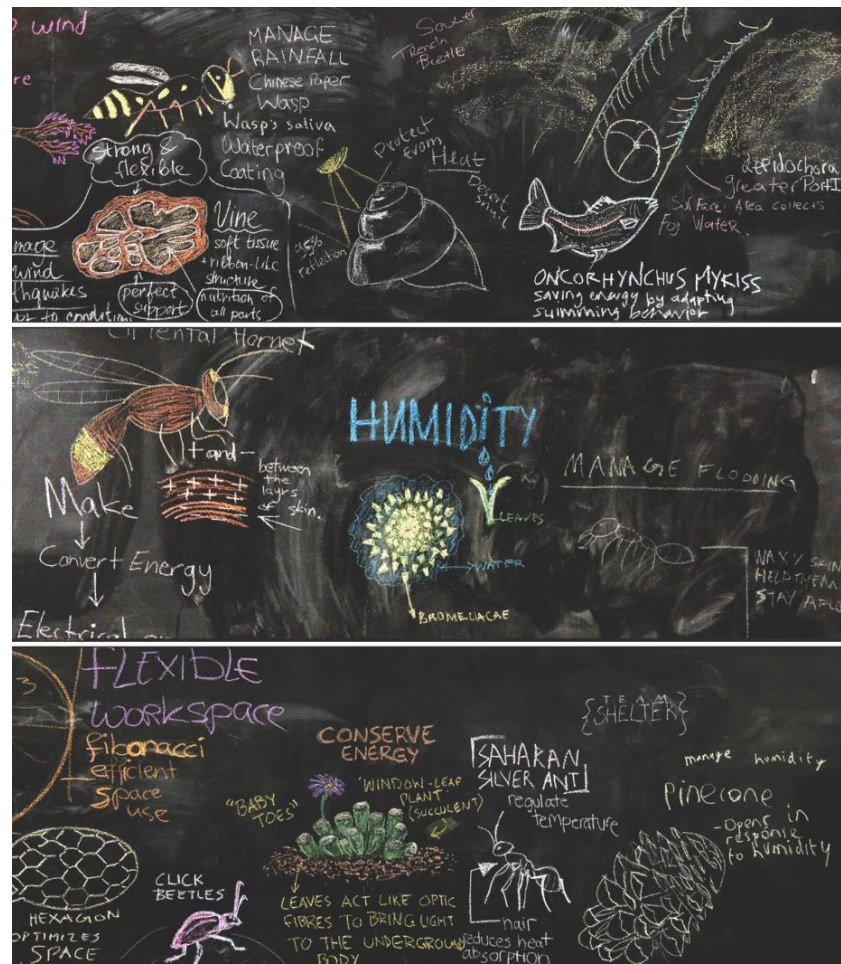 wind
re
MANAGE
RAINFALL
Chinese Paper
Wasp
Wasp's saliva
Waterproof
Coating
strong &
flexible
Vine
soft tissue
+ ribbon-like
structure
nutrition of
all parts
perfect
support
nage
wind
thquakes
to condition
95%
reflection
Protect
from
Heat
Desert
snail
Saucer
Trench
Beetle
Lepidochora
greater Port
Surface Area collects
Fog Water.
ONCORHYNCHUS MYKISS
saving energy by adapting
swimming behavior
Oriental Hornet
+ and -
between
the
layrs
of skin.
Make
Convert Energy
Electrical
HUMIDITY
LEAVES
WATER
BROMELIACAE
MANAGE FLODDING
WAXY SKIN
HELP THEM
STAY AFLO
3
FLEXIBLE
WORKSPACE
fibonacci
efficient
space
use
HEXAGON
OPTIMIZES
SPACE
CLICK
BEETLES
CONSERVE
ENERGY
"BABY
TOES"
'WINDOW-LEAF
PLANT'
(SUCCULENT)
LEAVES ACT LIKE OPTIC
FIBRES TO BRING LIGHT
TO THE UNDERGROUND
BODY
SAHARAN
SILVER ANT
regulate
temperature
hair
reduces heat
absorption
{TEAM
SHELTER}
manage humidity
pinecone
-Opens in
response
to humidity